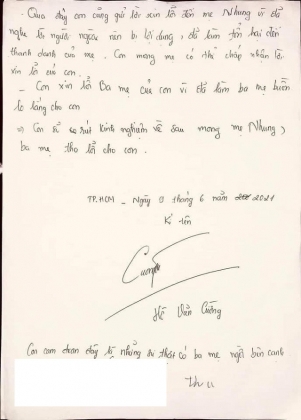 - Qua đây con cũng gửi lời xin lỗi đến mẹ Nhung vì đã
nghe lời người ngoài nên bị lợi dụng, đã làm tổn hại đến
thanh danh của mẹ. Con mong mẹ có thể chấp nhận lời
xin lỗi của con.
- Con xin lỗi Ba mẹ của con vì đã làm ba mẹ buồn
lo lắng cho con
Con sẽ rút kinh nghiệm về sau mong mẹ Nhung,
ba mẹ tha lỗi cho con.
TP.HCM - Ngày 9 tháng 6 năm 2021
Kí tên
Cường
Hồ Văn Cường
Con cam đoan đây là những sự thật có ba mẹ ngồi bên cạnh